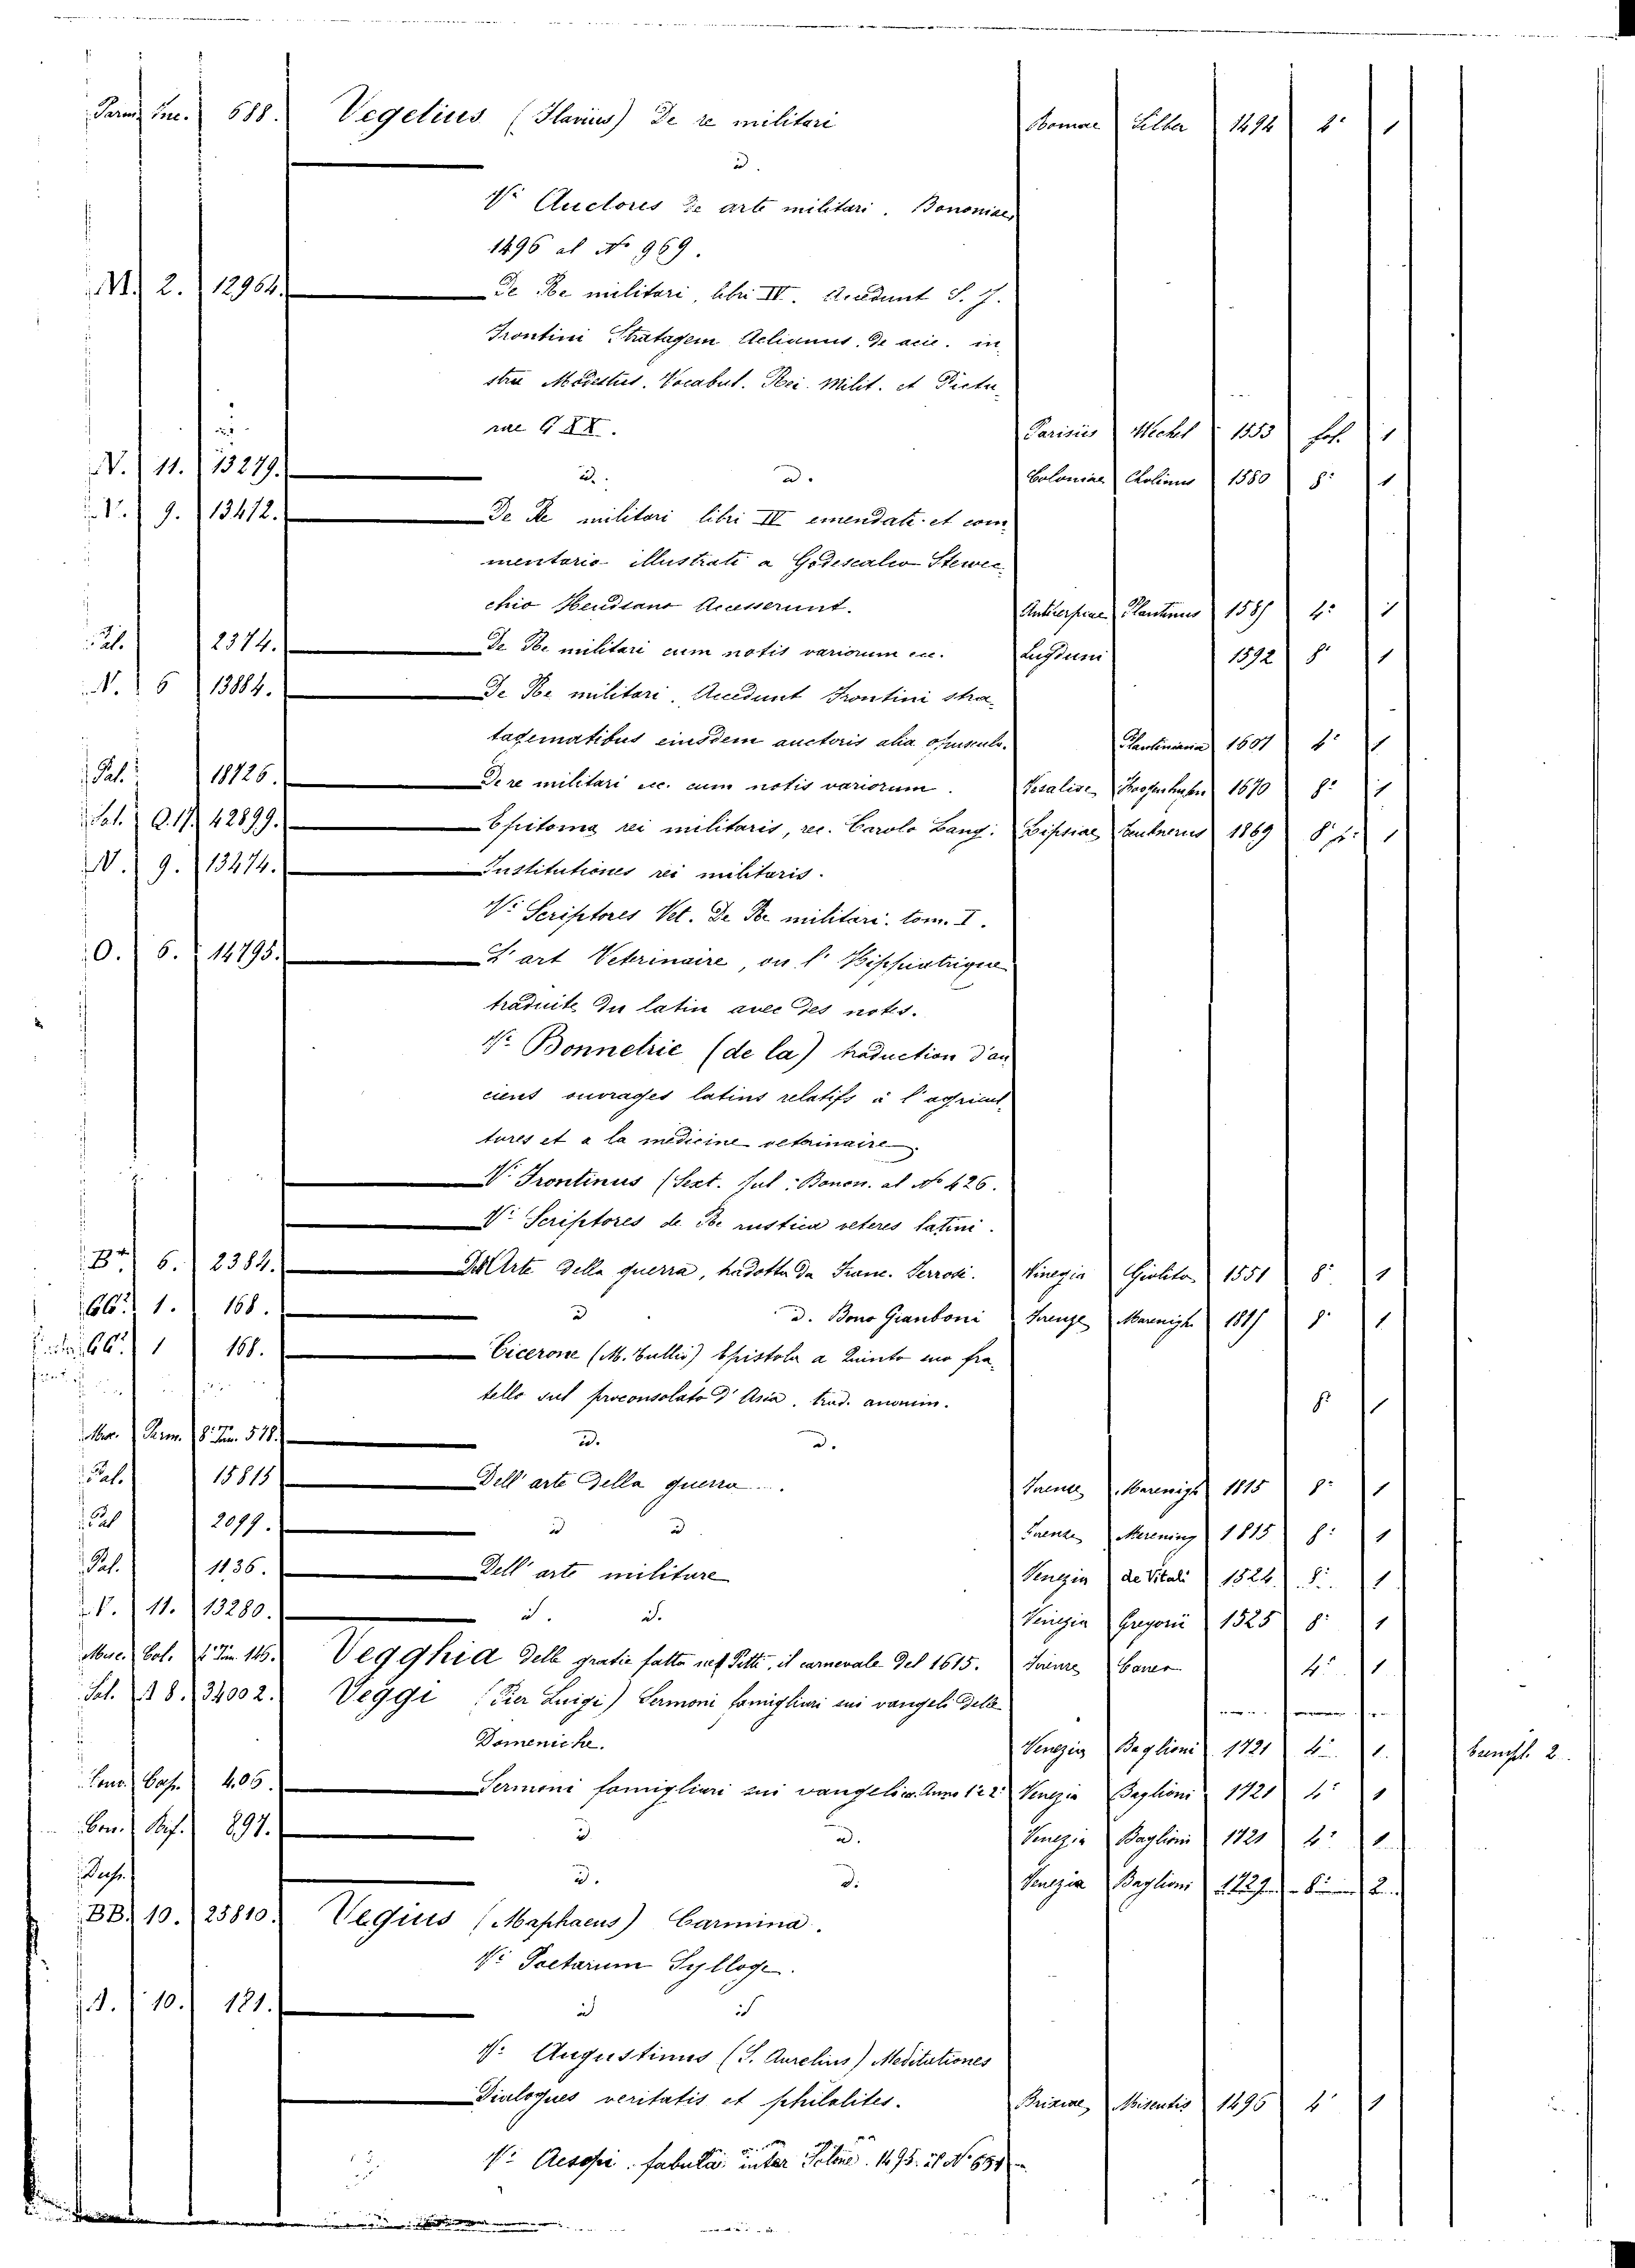 Parm. Inc. 688. Vegetius (Flavius) De re militari Romae Silber 1494 4° 1
id.
V. Auctores de arte militari. Bononiae,
1496 al N° 969.
M. 2. 12964. De Re militari, libri IV. Accedunt S. J.
Frontini Stratagem Aelianus, de acie. in
stru Modestus. Vocabul. Rei Milit. et Pictu
rae CXX. Parisiis Wechel 1553 fol. 1
V. 11. 13279. id. id. Coloniae Cholinus 1580 8° 1
V. 9. 13412. De Re militari libri IV emendati et com
mentario illustrati a Godescalco Stewec
chio Heusdano Accesserunt. Antverpiae Plantinus 1585 4° 1
Pal. 2374. De Re militari cum notis variorum ecc. Lugduni 1592 8° 1
N. 6 13884. De Re militari. Accedunt Frontini stra
tagematibus eiusdem auctoris alia opuscula. Plantiniana 1607 4° 1
Pal. 18126. De re militari ec. cum notis variorum. Vesaliae, Hoogenhuysen 1670 8° 1
Sal. Q.17. 42899. Epitoma rei militaris, rec. Carolo Lang. Lipsiae Teubnerus 1869 8° p. 1
V. 9. 13474. Institutiones rei militaris.
V. Scriptores Vet. De Re militari. tom. I.
O. 6. 14795. L'art Veterinaire, ou l'Hippiatrique
traduite du latin avec des notes.
V. Bonnetrie (de la) traduction d'an
ciens ouvrages latins relatifs à l'agricul
tures et a la medicine veterinaire.
V. Frontinus (Sext. Jul. Bonon. al N° 426.
V. Scriptores de Re rustica veteres latini.
B** 6. 2384. Dell'Arte della guerra, tradotta da Franc. Ferrosi. Vinegia Giolito 1551 8° 1
66. 1. 168. id d. Bono Giamboni Firenze Marenigh 1815 8° 1
66. 1 168. Cicerone (M. Tullio) Epistola a Quinto suo fra
tello sul proconsolato d'Asia, trad. anonim. 8° 1
Mer. Parm. 8° Fir. 578. id. id.
Pal. 15815 Dell'arte della guerra. Firenze Marenigh 1815 8° 1
Pal 2099. id id Firenze Marening 1815 8° 1
Pal. 1136. Dell'arte militare Venezia de Vitali 1524 8° 1
V. 11. 13280. id. id. Venezia Gregorii 1525 8° 1
Misc. Col. 4° Fir. 146. Vegghia delle gratie fatta nel Pitti, il carnevale del 1615. Firenze Caneo 4° 1
Sal. 8. 34002. Veggi (Pier Luigi) Sermoni famigliari sui vangeli delle
Domeniche. Venezia Baglioni 1721 4° 1. Compl. 2
Conv. Cap. 405. Sermoni famigliari sui vangeli ec. Anno 1 e 2° Venezia Baglioni 1721 4° 1
Con. Ref. 897. id id. Venezia Baglioni 1721 4° 1
Dupl. id. id. Venezia Baglioni 1729 2
BB. 10. 25810. Vegius (Maphaeus) Carmina.
V. Poetarum Sylloge.
10. 181. id id
V. Augustinus (S. Aurelius) Meditationes
Dialogues veritatis et philalites. Brixiae, Misentis 1496 4° 1
V. Aesopi. fabulae inter 1495. al N° 651